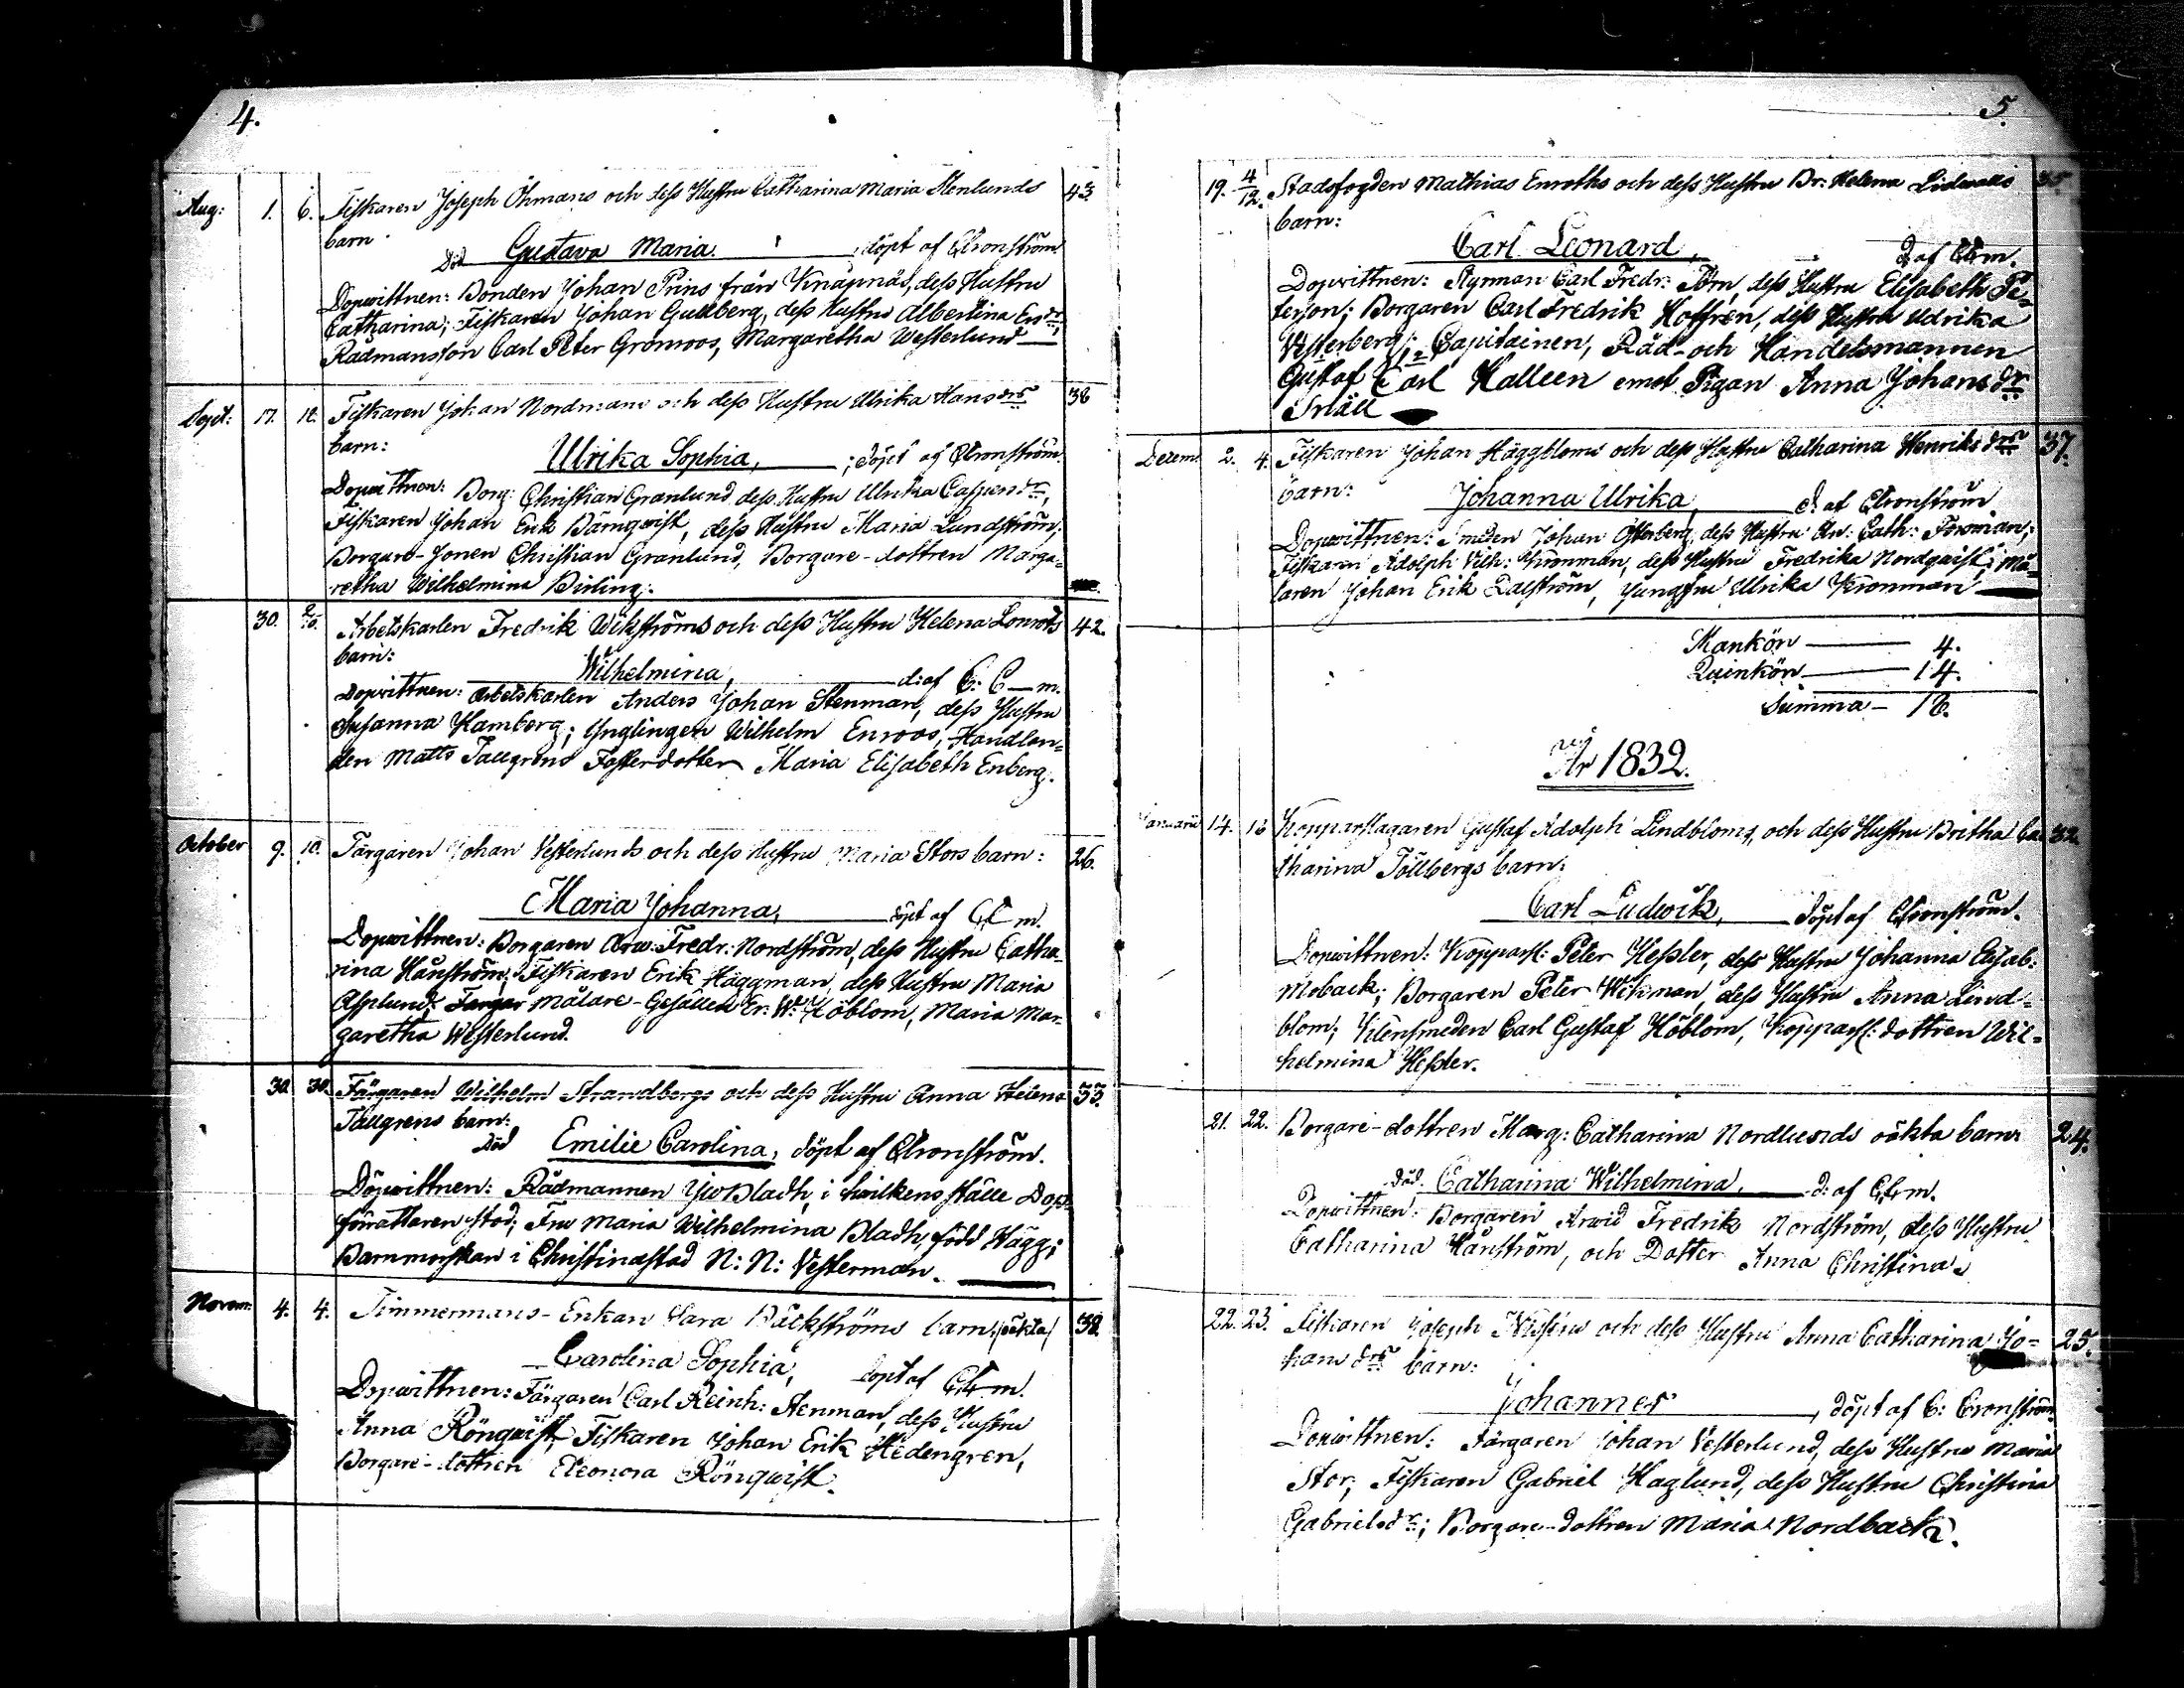 4.
Aug: 1. 6. Fiskaren Joseph Öhmans och dess Hustru Catharina Maria Stenlunds 43.
barn
Död Gustava Maria. , döpt af CCronström.
Dopvittnen: Bonden Johan Prins från Knåpnäs, dess Hustru
Catharina; Fiskaren Johan Gullberg, dess Hustru Albertina
Rådmansson Carl Peter Grönroos, Margaretha Westerlund
Sept: 17. 18. Fiskaren Johan Nordmans och dess Hustru Ulrika Hansdrs 38
barn:
Ulrika Sophia, ; döpt af CCronström.
Dopvittnen: Borg: Christian Granlund dess Hustru Ulrika Caspersdr,
Fiskaren Johan Erik Bärnqvist, dess Hustru Maria Lundström;
Borgare-Sonen Christian Granlund, Borgare-dottren Marga-
retha Wilhelmina Birling.
30. 2/10. Arbetskarlen Fredrik Wikströms och dess Hustru Helena Lonrots 42.
barn:
Wilhelmina, d: af C: C—m.
Dopvittnen: Arbetskarlen Anders Johan Stenman, dess Hustru
Susanna Hamberg; Ynglingen Wilhelm Enroos, Handlan-
den Matts Tallgrens Fosterdotter Maria Elisabeth Enberg.
October 9. 10. Färgaren Johan Vesterlunds och dess Hustru Maria Stors barn: 26.
Maria Johanna, döpt af CC m.
Dopvittnen: Borgaren Arw: Fredr: Nordström, dess Hustru Catha-
rina Hånström; Fiskaren Erik Häggman, dess Hustru Maria
Asplund; Målare-Gesällen Er: W: Höblom, Maria Mar-
garetha Westerlund.
30. 30. Färgaren Wilhelm Strandbergs och dess Hustru Anna Helena 33.
Tallgrens barn:
Död Emilie Carolina, döpt af CCronström.
Dopvittnen: Rådmannen Bladh, i hvilkens ställe Dop-
förrättaren stod; Fru Maria Wilhelmina Bladh, född Hägg;
Barnmorskan i Christinæstad N: N: Vesterman.
Novem: 4. 4. Timmermans-Enkan Sara Bäckströms barn, /oäkta/ 39.
Carolina Sophia, döpt af CC—m.
Dopvittnen: Färgaren Carl Reinh: Stenman, dess Hustru
Anna Rönqvist, Fiskaren Johan Erik Hedengren,
Borgare-dottren Eleonora Rönqvist.
5.
19. 4/12. Stadsfogden Mathias Enroths och dess Hustru Br: Helena Lidwalls 35
barn:
Carl Leonard, d. af CC—m.
Dopvittnen: Styrman Carl Fredr: Törn, dess Hustru Elisabeth Pe-
terson; Borgaren Carl Fredrik Hoffrén, dess Hustru Udrika
Vesterberg; Capitainen, Råd- och Handelsmannen
Gustaf Carl Halleen emot Pigan Anna Johansdr
Snäll
Decem: 2. 4. Fiskaren Johan Häggbloms och dess Hustru Catharina Henriksdrs 37.
barn:
Johanna Ulrika, d. af CCronström
Dopvittnen: Smeden Johan Österberg, dess Hustru An: Cath: Forsman;
Fiskaren Adolph Vilh: Kronman, dess Hustru Fredrika Nordqvist; Må-
laren Johan Erik Dalström, Jungfru Ulrika Kronman
Mankön — 4.
Quinkön — 14.
Summa — 18.
År 1832.
Januarii 14. 16 Kopparslagaren Gustaf Adolph Lindbloms, och dess Hustru Britha Ca- 32.
tharina Töllbergs barn:
Carl Ludwik, döpt af CCronström.
Dopvittnen: Kopparsl: Peter Hessler, dess Hustru Johanna Elisab:
Moback; Borgaren Peter Wikman, dess Hustru Anna Lind-
blom; Klensmeden Carl Gustaf Höblom, Kopparsl: dottren Wil-
helmina Hessler.
21. 22. Borgare-dottren Marg: Catharina Nordlunds oäkta barn 24.
död. Catharina Wilhelmina, d: af CC—m.
Dopvittnen: Borgaren Arwid Fredrik Nordström, dess Hustru
Catharina Hånström, och Dotter Anna Christina.
22. 23. Fiskaren Joseph och dess Hustru Anna Catharina Jo- 25.
hansdrs barn:
Johannes, döpt af C: Cronström
Dopvittnen: Färgaren Johan Vesterlund, dess Hustru Maria
Stor; Fiskaren Gabriel Haglund, dess Hustru Christina
Gabrielsdr; Borgare-dottren Maria Nordback.